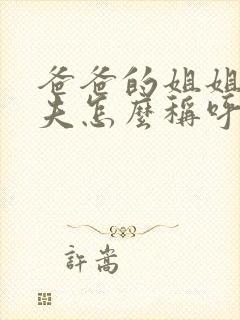 爸爸的姐姐
夫怎麼稱呼
許嵩